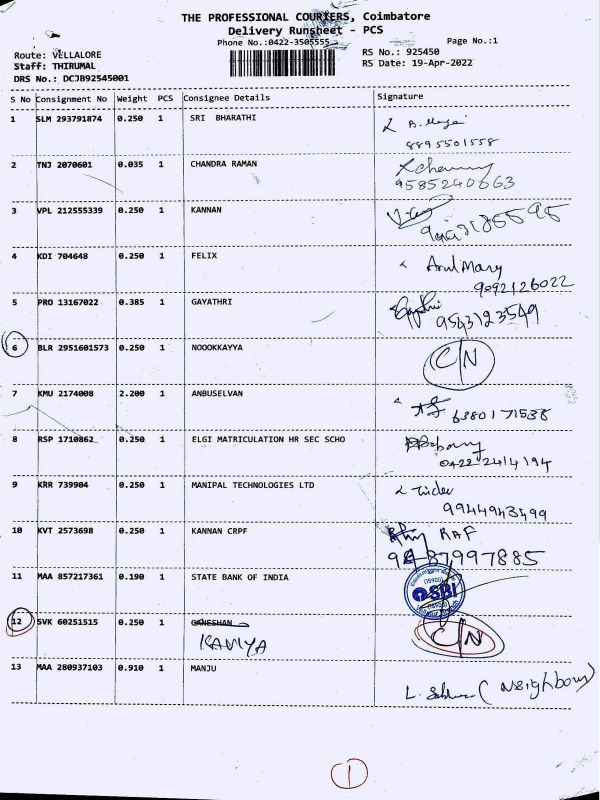 THE PROFESSIONAL COURIERS, Coimbatore
Delivery Runsheet - PCS
Phone No.:0422-3505555
Page No.:1
Route: VELLALORE
Staff: THIRUMAL
DRS No.: DCJB92545001
RS No.: 925450
RS Date: 19-Apr-2022
S No Consignment No Weight PCS Consignee Details Signature
1 SLM 293791874 0.250 1 SRI BHARATHI
8895501558
2 TNJ 2070601 0.035 1 CHANDRA RAMAN
9585240663
3 VPL 212555339 0.250 1 KANNAN
4 KDI 704648 0.250 1 FELIX Arul Mary
9092126022
5 PRO 13167022 0.385 1 GAYATHRI Gayathri
9543123549
6 BLR 2951601573 0.250 1 NOOOKKAYYA C/N
7 KMU 2174008 2.200 1 ANBUSELVAN
6380171538
8 RSP 1710862 0.250 1 ELGI MATRICULATION HR SEC SCHO
0422 2414194
9 KRR 739904 0.250 1 MANIPAL TECHNOLOGIES LTD
9944943499
10 KVT 2573698 0.250 1 KANNAN CRPF RAF
9487997885
11 MAA 857217361 0.190 1 STATE BANK OF INDIA SBI
12 SVK 60251515 0.250 1 GANESHAN C/N
KAVIYA
13 MAA 280937103 0.910 1 MANJU (Neighbour)
1